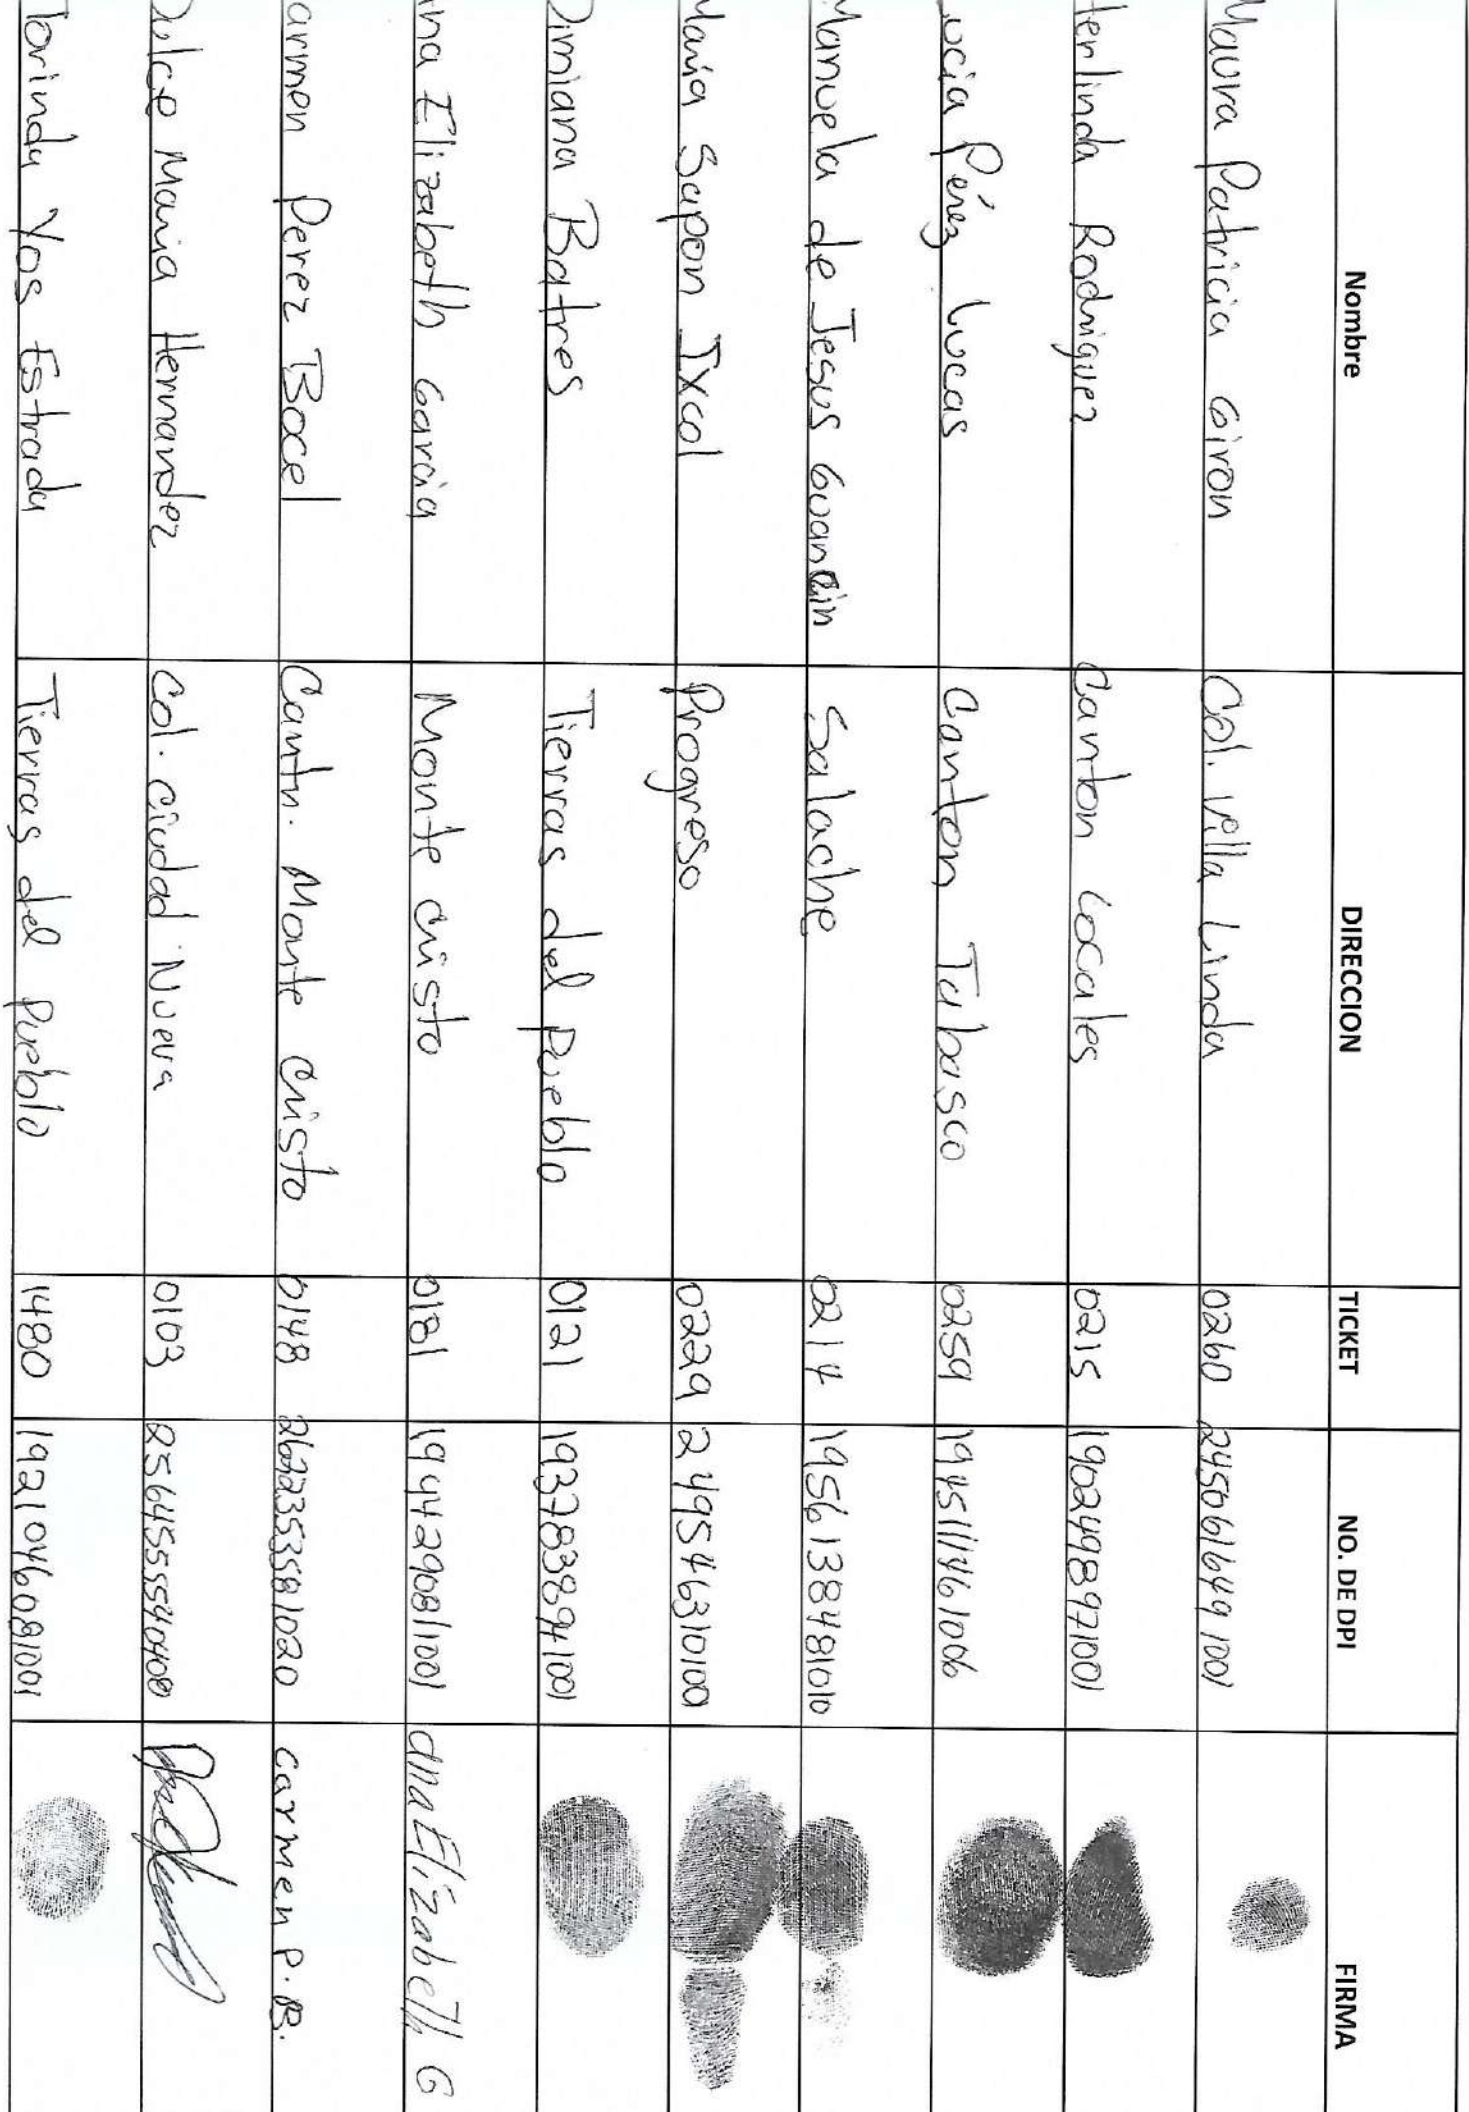 Nombre DIRECCION TICKET NO. DE DPI FIRMA
Maura Patricia Giron Col. Villa Linda 0260 2450616491001
Herlinda Rodriguez Canton Locales 0215 1902498971001
Lucia Pérez Lucas Canton Tabasco 0259 1945111461006
Manuela de Jesus Salache 0214 1956138481010
Maria Sapon Ixcol Progreso 0229 249546310100
Dimiana Batres Tierras del Pueblo 0121 1937838941001
ina Elizabeth Garcia Monte Cristo 0181 1944290811001 ana Elizabeth G
armen Perez Bocel Cantn. Monte Cristo 0148 2622353581020 carmen P. B.
Dulce Maria Hernandez Col. Ciudad Nueva 0103 2564555540408
lorinda Yos Estrada Tierras del Pueblo 1480 1921046081001